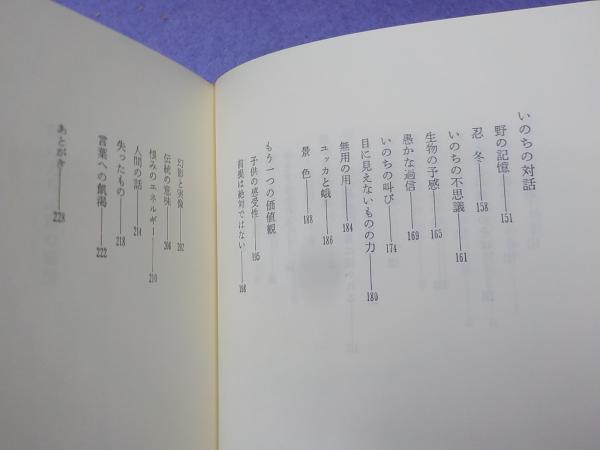 いのちの対話
野の記憶——151
忍 冬——158
いのちの不思議——161
生物の予感——165
愚かな過信——169
いのちの叫び——174
目に見えないものの力——180
無用の用——184
ユッカと蛾——186
景 色——188
もう一つの価値観
子供の感受性——195
前提は絶対ではない——198
幻影と実像——202
伝統の意味——206
恨みのエネルギー——210
人間の話——214
失ったもの——218
言葉への飢渇——222
あとがき——228